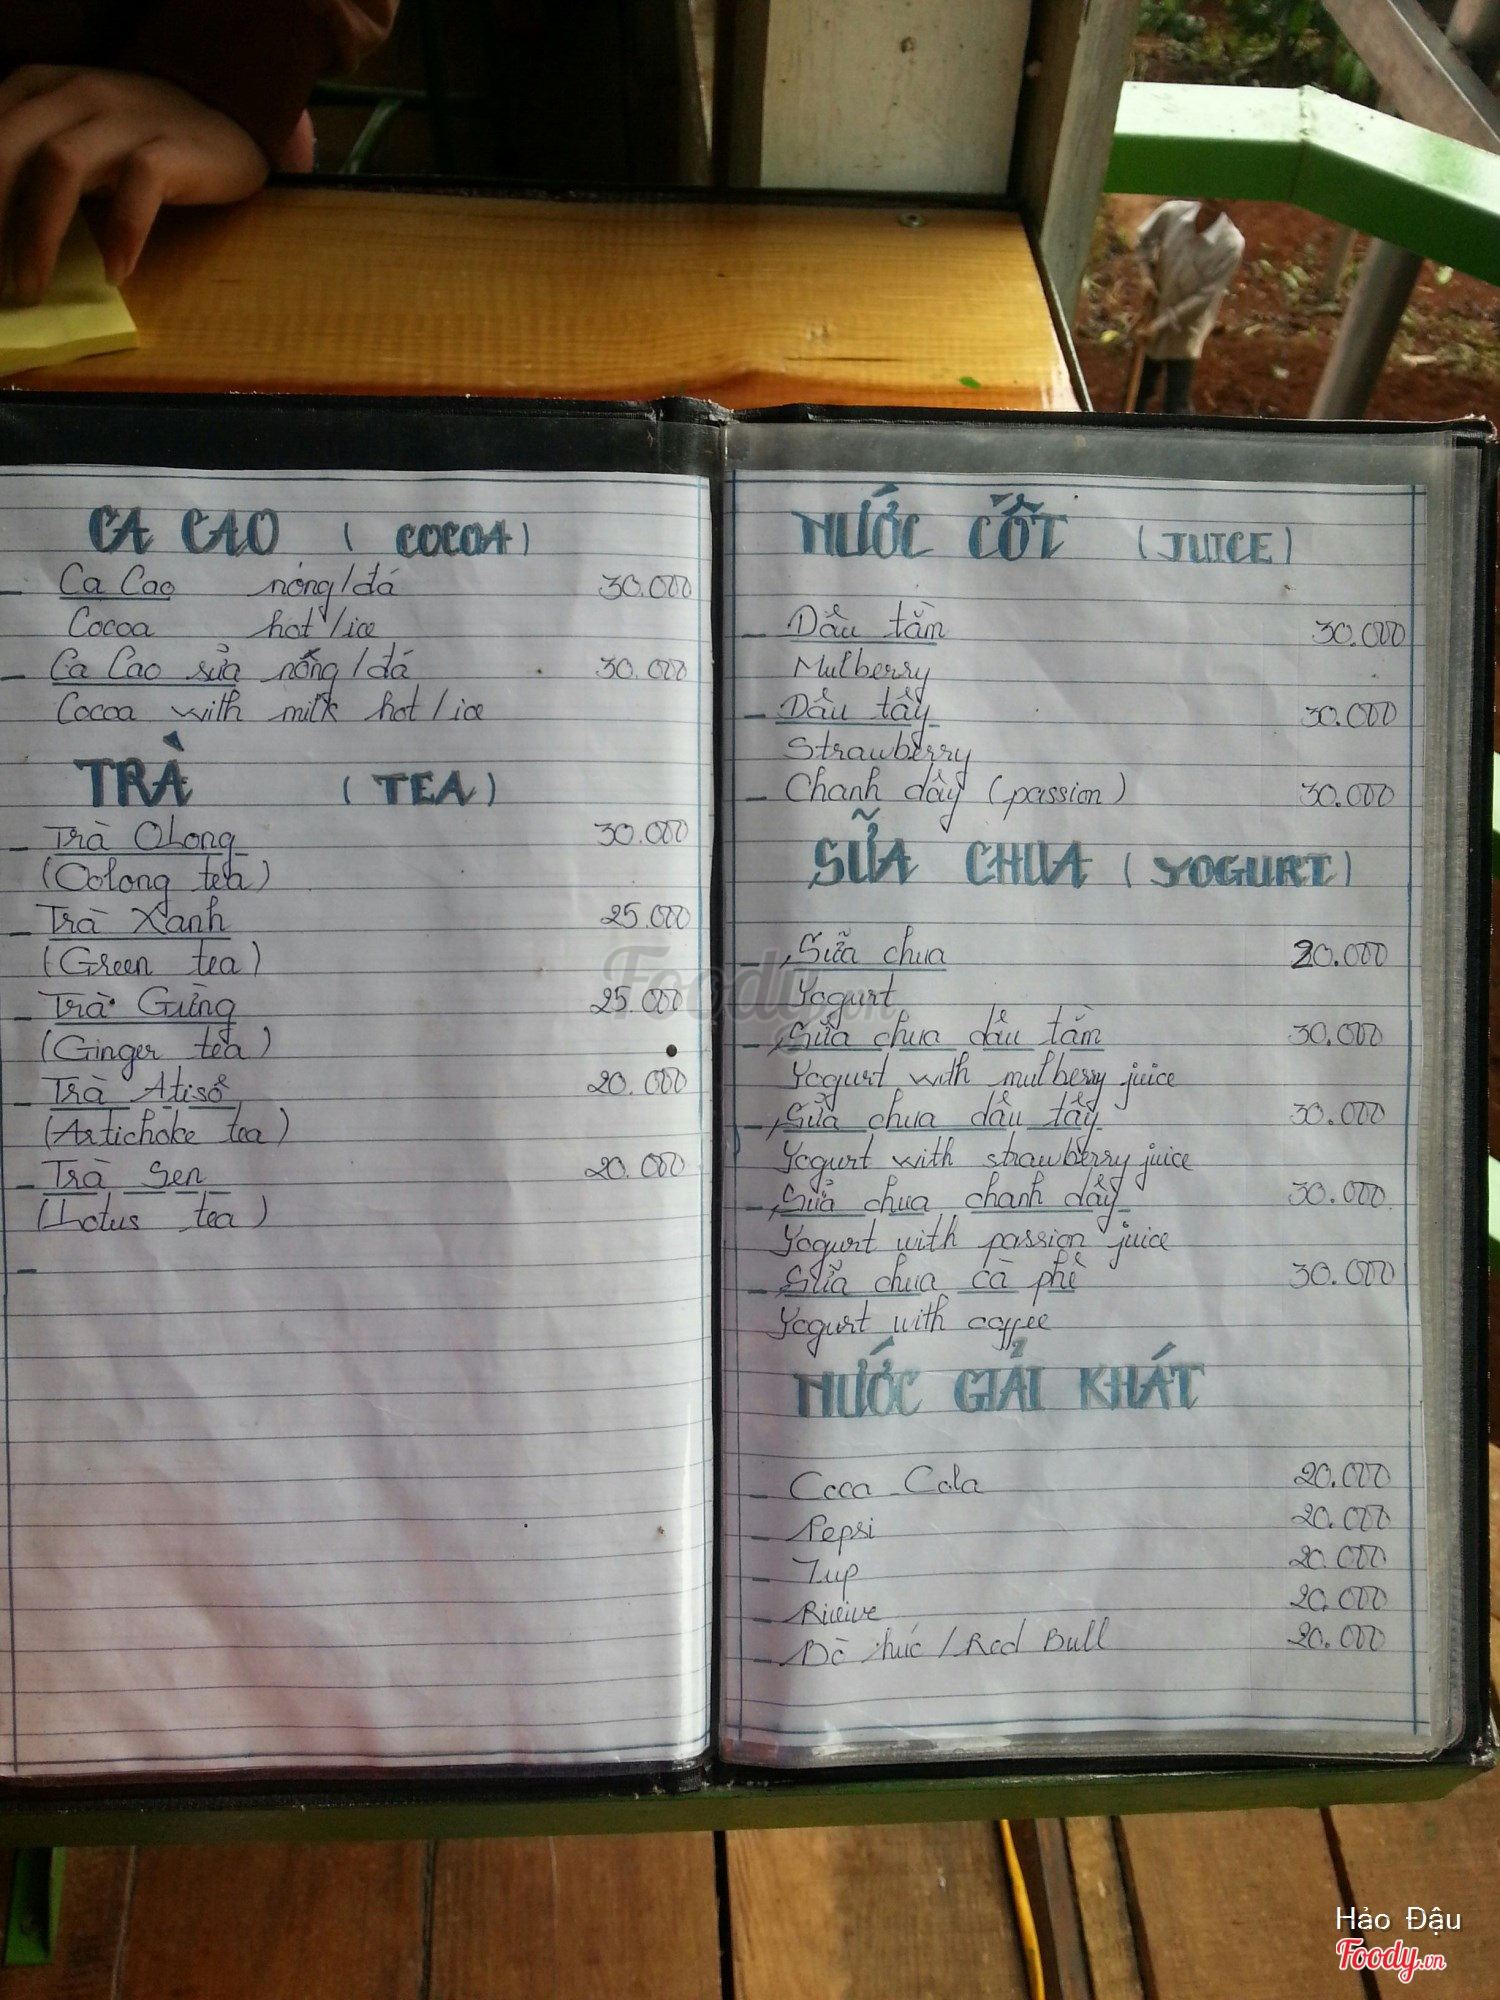 CA CAO ( COCOA )
_ Ca Cao nóng/đá 30.000
Cocoa hot/ice
_ Ca Cao sửa nóng/đá 30.000
Cocoa with milk hot/ice
TRÀ ( TEA )
_ Trà OLong 30.000
(Oolong tea)
_ Trà Xanh 25.000
(Green tea)
_ Trà Gừng 25.000
(Ginger tea)
_ Trà Atisô 20.000
(Artichoke tea)
_ Trà Sen 20.000
(Lotus tea)
_
NƯỚC CỐT ( JUICE )
_ Dâu tằm 30.000
Mulberry
_ Dâu tây 30.000
Strawberry
_ Chanh dây (passion) 30.000
SỮA CHUA ( YOGURT )
_ Sữa chua 20.000
Yogurt
_ Sữa chua dâu tằm 30.000
Yogurt with mulberry juice
_ Sữa chua dâu tây 30.000
Yogurt with strawberry juice
_ Sữa chua chanh dây 30.000
Yogurt with passion juice
_ Sữa chua cà phê 30.000
Yogurt with coffee
NƯỚC GIẢI KHÁT
_ Coca Cola 20.000
_ Pepsi 20.000
_ 7up 20.000
_ Riveive 20.000
_ Bò húc / Red Bull 20.000
Foody.vn
Hảo Đậu
Foody.vn